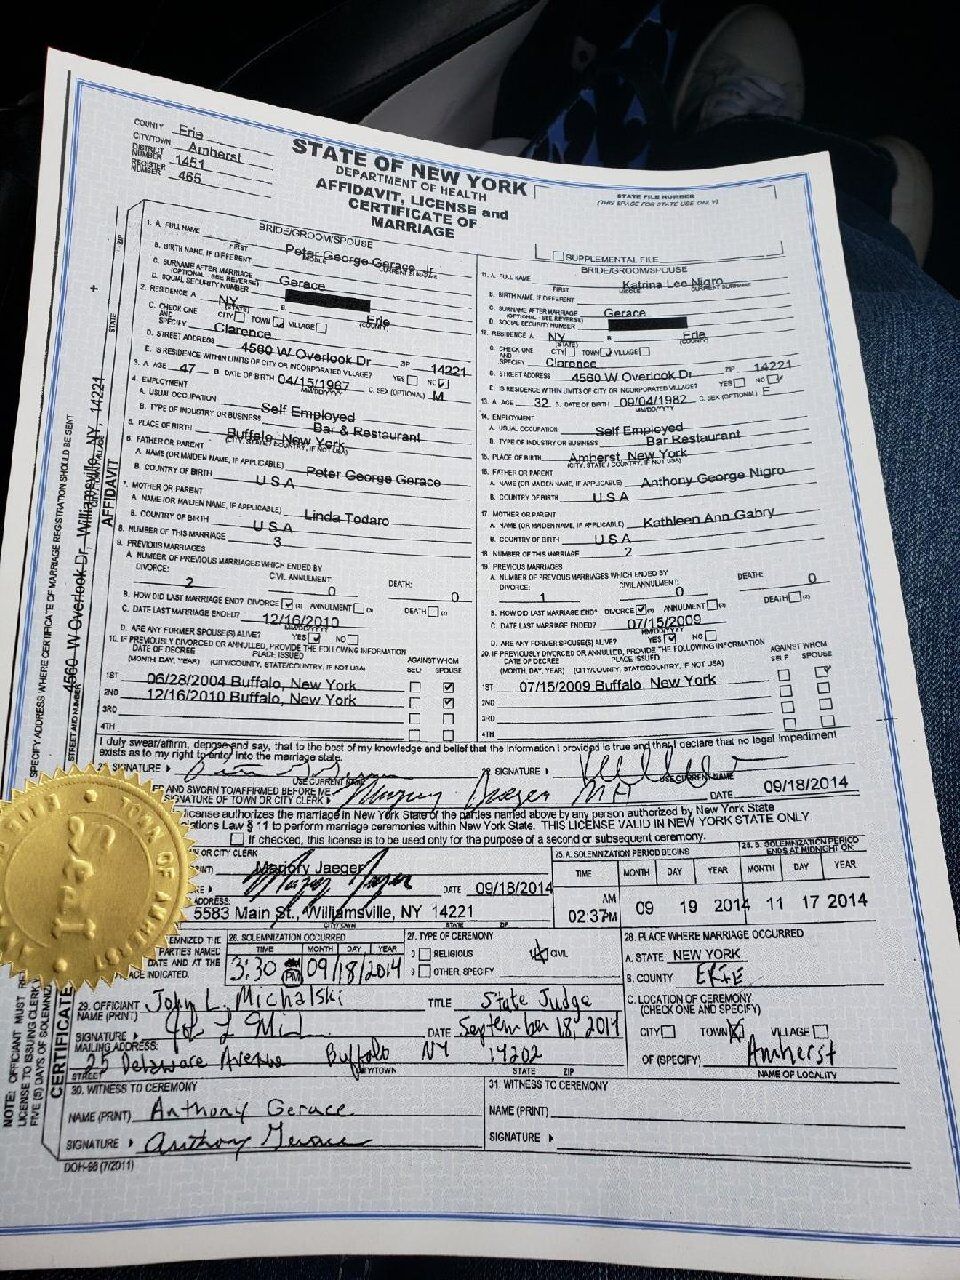 COUNTY Erie
CITY/TOWN Amherst
DISTRICT NUMBER 1451
REGISTER NUMBER 465
STATE OF NEW YORK
DEPARTMENT OF HEALTH
AFFIDAVIT, LICENSE and
CERTIFICATE OF
MARRIAGE
STATE FILE NUMBER
(THIS SPACE FOR STATE USE ONLY)
SUPPLEMENTAL FILE
BRIDE/GROOM/SPOUSE
1. A. FULL NAME Peter George Gerace Jr
FIRST MIDDLE CURRENT SURNAME
B. BIRTH NAME, IF DIFFERENT
C. SURNAME AFTER MARRIAGE Gerace
(OPTIONAL - SEE REVERSE)
D. SOCIAL SECURITY NUMBER
2. RESIDENCE A. NY B. Erie
(STATE) (COUNTY)
C. CHECK ONE AND SPECIFY CITY TOWN VILLAGE
Clarence
D. STREET ADDRESS 4560 W Overlook Dr ZIP 14221
E. IS RESIDENCE WITHIN LIMITS OF CITY OR INCORPORATED VILLAGE? YES NO
3. A. AGE 47 B. DATE OF BIRTH 04/15/1967 C. SEX (OPTIONAL) M
MM/DD/YYYY
4. EMPLOYMENT
A. USUAL OCCUPATION Self Employed
B. TYPE OF INDUSTRY OR BUSINESS Bar & Restaurant
5. PLACE OF BIRTH Buffalo, New York
(CITY, STATE / COUNTRY, IF NOT USA)
6. FATHER OR PARENT
A. NAME (OR MAIDEN NAME, IF APPLICABLE) Peter George Gerace
B. COUNTRY OF BIRTH U S A
7. MOTHER OR PARENT
A. NAME (OR MAIDEN NAME, IF APPLICABLE) Linda Todaro
B. COUNTRY OF BIRTH U S A
8. NUMBER OF THIS MARRIAGE 3
9. PREVIOUS MARRIAGES
A. NUMBER OF PREVIOUS MARRIAGES WHICH ENDED BY
DIVORCE: 2 CIVIL ANNULMENT: 0 DEATH: 0
B. HOW DID LAST MARRIAGE END? DIVORCE ANNULMENT DEATH
C. DATE LAST MARRIAGE ENDED? 12/16/2010
MM/DD/YYYY
D. ARE ANY FORMER SPOUSE(S) ALIVE? YES NO
10. IF PREVIOUSLY DIVORCED OR ANNULLED, PROVIDE THE FOLLOWING INFORMATION
DATE OF DECREE PLACE ISSUED AGAINST WHOM
(MONTH, DAY, YEAR) (CITY/COUNTY, STATE/COUNTRY, IF NOT USA) SELF SPOUSE
1ST 06/28/2004 Buffalo, New York
2ND 12/16/2010 Buffalo, New York
3RD
4TH
BRIDE/GROOM/SPOUSE
11. A. FULL NAME Katrina Lee Nigro
FIRST MIDDLE CURRENT SURNAME
B. BIRTH NAME, IF DIFFERENT
C. SURNAME AFTER MARRIAGE Gerace
(OPTIONAL - SEE REVERSE)
D. SOCIAL SECURITY NUMBER
12. RESIDENCE A. NY B. Erie
(STATE) (COUNTY)
C. CHECK ONE AND SPECIFY CITY TOWN VILLAGE
Clarence
D. STREET ADDRESS 4560 W Overlook Dr ZIP 14221
E. IS RESIDENCE WITHIN LIMITS OF CITY OR INCORPORATED VILLAGE? YES NO
13. A. AGE 32 B. DATE OF BIRTH 09/04/1982 C. SEX (OPTIONAL) F
MM/DD/YYYY
14. EMPLOYMENT
A. USUAL OCCUPATION Self Employed
B. TYPE OF INDUSTRY OR BUSINESS Bar Restaurant
15. PLACE OF BIRTH Amherst, New York
(CITY, STATE / COUNTRY, IF NOT USA)
16. FATHER OR PARENT
A. NAME (OR MAIDEN NAME, IF APPLICABLE) Anthony George Nigro
B. COUNTRY OF BIRTH U S A
17. MOTHER OR PARENT
A. NAME (OR MAIDEN NAME, IF APPLICABLE) Kathleen Ann Gabry
B. COUNTRY OF BIRTH U S A
18. NUMBER OF THIS MARRIAGE 2
19. PREVIOUS MARRIAGES
A. NUMBER OF PREVIOUS MARRIAGES WHICH ENDED BY
DIVORCE: 1 CIVIL ANNULMENT: 0 DEATH: 0
B. HOW DID LAST MARRIAGE END? DIVORCE ANNULMENT DEATH
C. DATE LAST MARRIAGE ENDED? 07/15/2009
MM/DD/YYYY
D. ARE ANY FORMER SPOUSE(S) ALIVE? YES NO
20. IF PREVIOUSLY DIVORCED OR ANNULLED, PROVIDE THE FOLLOWING INFORMATION
DATE OF DECREE PLACE ISSUED AGAINST WHOM
(MONTH, DAY, YEAR) (CITY/COUNTY, STATE/COUNTRY, IF NOT USA) SELF SPOUSE
1ST 07/15/2009 Buffalo, New York
2ND
3RD
4TH
I duly swear/affirm, depose and say, that to the best of my knowledge and belief that the information I provided is true and that I declare that no legal impediment
exists as to my right to enter into the marriage state.
SIGNATURE SIGNATURE
USE CURRENT NAME USE CURRENT NAME
AND SWORN TO/AFFIRMED BEFORE ME
SIGNATURE OF TOWN OR CITY CLERK Marjory Jaeger DATE 09/18/2014
license authorizes the marriage in New York State of the parties named above by any person authorized by New York State
Law § 11 to perform marriage ceremonies within New York State. THIS LICENSE VALID IN NEW YORK STATE ONLY
If checked, this license is to be used only for the purpose of a second or subsequent ceremony.
OR CITY CLERK
Marjory Jaeger
Marjory Jaeger DATE 09/18/2014
ADDRESS:
5583 Main St., Williamsville, NY 14221
CITY/TOWN ST ZIP
A. SOLEMNIZATION PERIOD BEGINS
TIME MONTH DAY YEAR
AM
02:37PM 09 19 2014
B. SOLEMNIZATION PERIOD ENDS AT MIDNIGHT ON:
MONTH DAY YEAR
11 17 2014
THE
PARTIES NAMED
DATE AND AT THE
PLACE INDICATED.
26. SOLEMNIZATION OCCURRED
TIME MONTH DAY YEAR
3:30 PM 09/18/2014
27. TYPE OF CEREMONY
RELIGIOUS CIVIL
OTHER, SPECIFY
28. PLACE WHERE MARRIAGE OCCURRED
A. STATE NEW YORK
B. COUNTY ERIE
C. LOCATION OF CEREMONY
(CHECK ONE AND SPECIFY)
CITY TOWN VILLAGE
OF (SPECIFY) Amherst
NAME OF LOCALITY
29. OFFICIANT NAME (PRINT) John L. Michalski TITLE State Judge
SIGNATURE DATE September 18, 2014
MAILING ADDRESS:
25 Delaware Avenue Buffalo NY 14202
STREET CITY/TOWN STATE ZIP
30. WITNESS TO CEREMONY
NAME (PRINT) Anthony Gerace
SIGNATURE Anthony Gerace
31. WITNESS TO CEREMONY
NAME (PRINT)
SIGNATURE
DOH-98 (7/2011)
SPECIFY ADDRESS WHERE CERTIFICATE OF MARRIAGE REGISTRATION SHOULD BE SENT
4560 W Overlook Dr, Williamsville, NY, 14221
STREET AND NUMBER
STATE
ZIP
AFFIDAVIT
CERTIFICATE
NOTE: OFFICIANT MUST
LICENSE TO ISSUING CLERK
FIVE (5) DAYS OF
TOWN OF